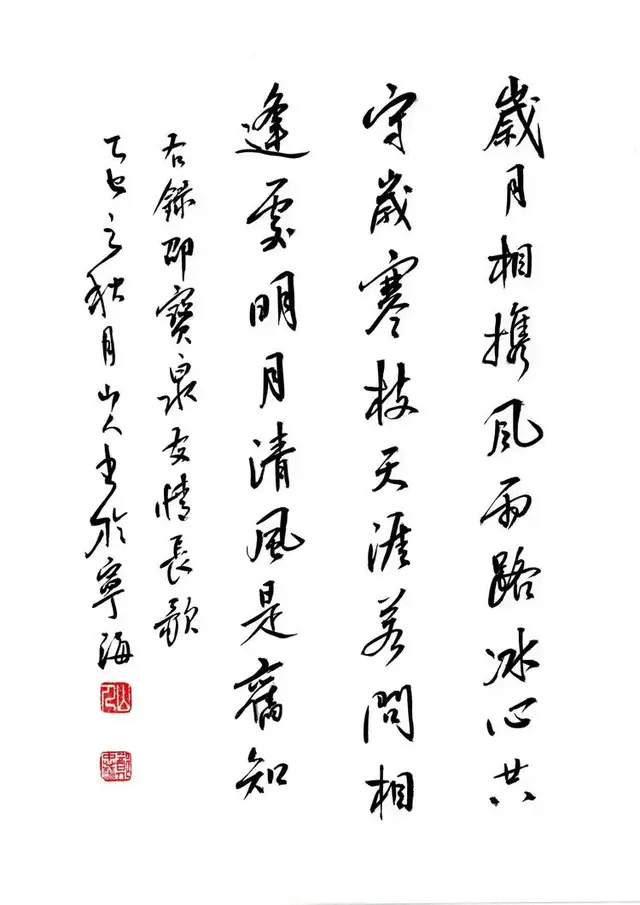 歲月相携风雨路冰心共
守歲寒枝天涯若問相
逢處明月清風是舊知
右錄邵寶泉友情長歌
乙巳之秋月山人书於寧海